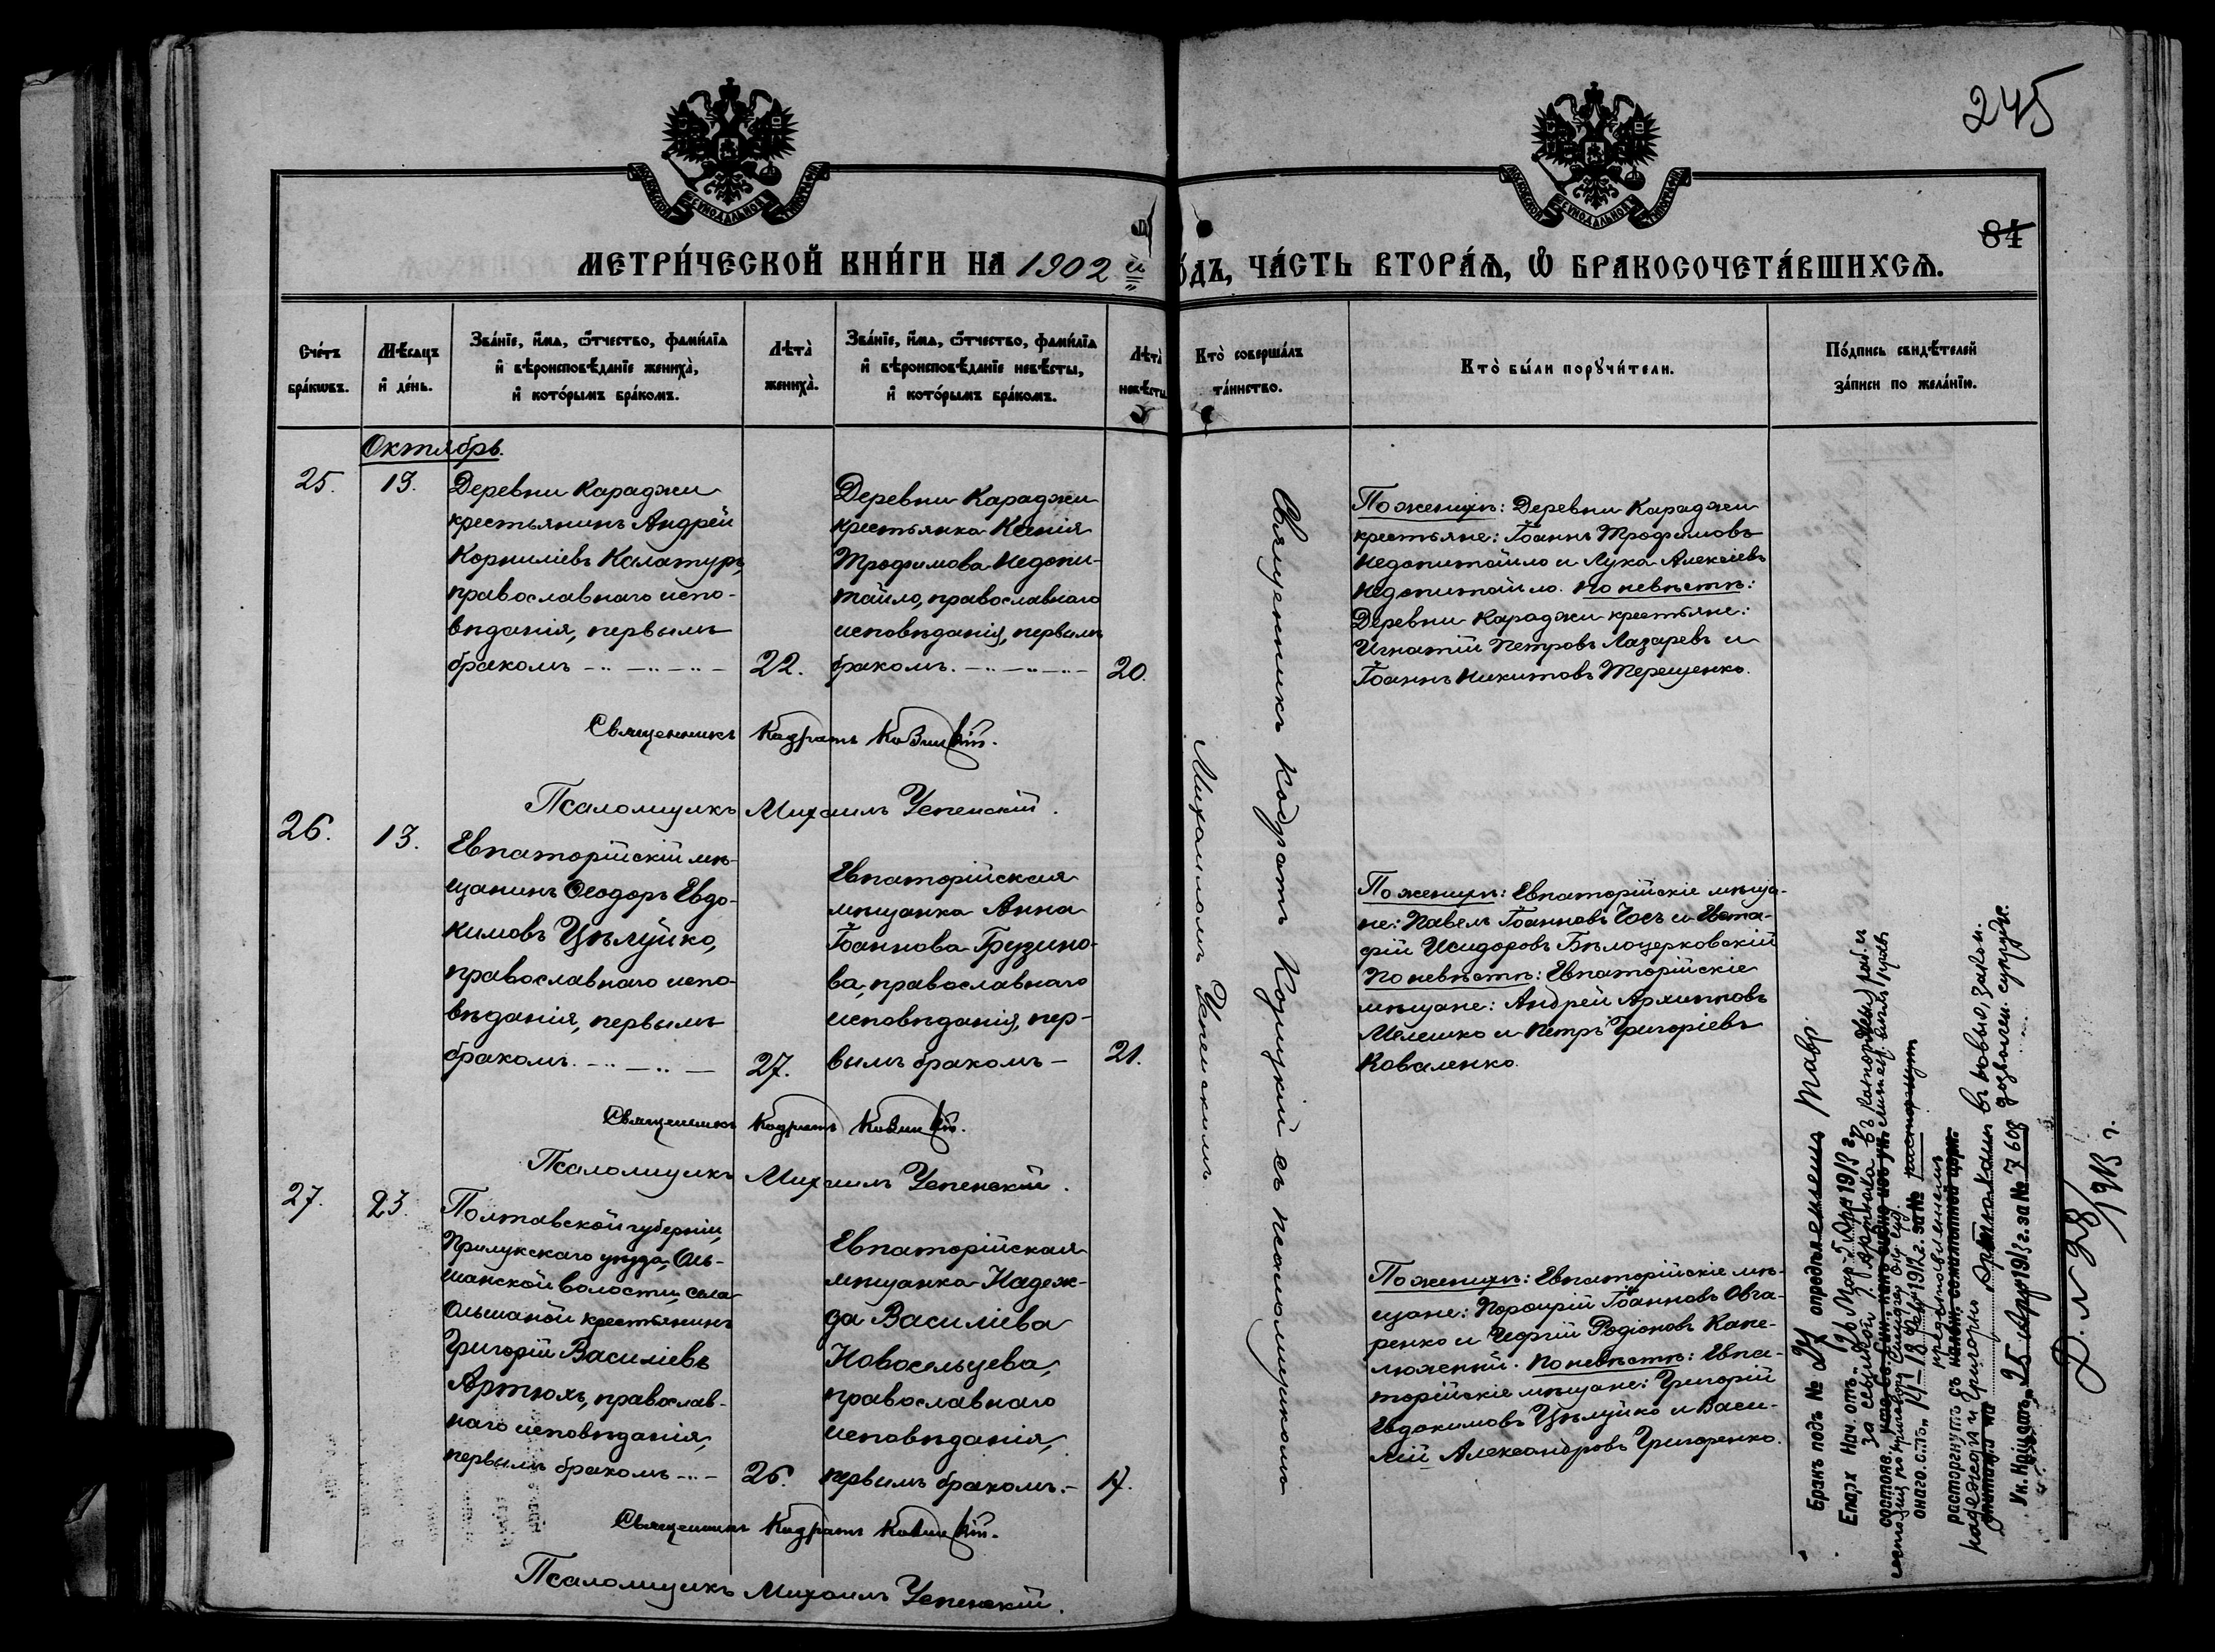 245
84
МЕТРИ́ЧЕСКОЙ КНИ́ГИ НА 1902 й
О́ДЪ, ЧА́СТЬ ВТОРА́Ѧ, Ѽ БРАКОСОЧЕТА́ВШИХСѦ.
Сче́тъ
бра́кѡвъ.
Мѣ́сѧцъ
и҆ де́нь.
Зва́нїе, и҆́мѧ, ѻ҆́тчество, фамилїѧ
и҆ вѣроисповѣ́данїе жениха̀,
и҆ кото́рымъ бра́комъ.
Лѣта̀
жениха̀.
Зва́нїе, и҆́мѧ, ѻ҆́тчество, фамилїѧ
и҆ вѣроисповѣ́данїе невѣ́сты,
и҆ кото́рымъ бра́комъ.
Лѣта̀
невѣ́сты
Кто̀ соверша́лъ
та́инство.
Кто̀ бы́ли порꙋчи́тели.
По́дпись свидѣ́телей
за́писи по жела́нїю.
Октябрь.
25.
13.
Деревни Караджи
крестьянинъ Андрей
Корниліевъ Калатуръ,
православнаго испо-
вѣданія, первымъ
бракомъ
22.
Деревни Караджи
крестьянка Ксенія
Трофимова Недопи-
тайло, православнаго
исповѣданія, первымъ
бракомъ.
20.
По женихѣ: Деревни Караджи
крестьяне: Іоаннъ Трофимовъ
Недопитайло и Лука Алексіевъ
Недопитайло. По невѣстѣ:
Деревни Караджи крестьяне:
Игнатій Петровъ Лазаревъ и
Іоаннъ Никитовъ Терещенко.
Священникъ Кодратъ
Псаломщикъ Михаилъ Успенскій.
26.
13.
Евпаторійскій мѣ-
щанинъ Ѳеодоръ Евдо-
кимовъ Цѣлуйко,
православнаго испо-
вѣданія, первымъ
бракомъ.
27.
Евпаторійская
мѣщанка Анна
Іоаннова Грузино-
ва, православнаго
исповѣданія, пер-
вымъ бракомъ
21.
По женихѣ: Евпаторійскіе мѣща-
не: Павелъ Іоанновъ Чосъ и Евста-
фій Исидоровъ Бѣлоцерковскій
По невѣстѣ: Евпаторійскіе
мѣщане: Андрей Архипповъ
Мелешко и Петръ Григоріевъ
Коваленко.
Священникъ Кодратъ
Псаломщикъ Михаилъ Успенскій.
27.
23.
Полтавской губерніи,
Прилукскаго уѣзда, Оль-
шанской волости, села
Ольшаной крестьянинъ
Григорій Василіевъ
Артюхъ, православ-
наго исповѣданія,
первымъ бракомъ
26.
Евпаторійская
мѣщанка Надеж-
да Василіева
Новосельцева,
православнаго
исповѣданія,
первымъ бракомъ.
17.
По женихѣ: Евпаторійскіе мѣ-
щане: Порфирій Іоанновъ Овча-
ренко и Георгій Родіоновъ Капе-
люжный. По невѣстѣ: Евпа-
торійскіе мѣщане: Григорій
Евдокимовъ Цѣлуйко и Васи-
лій Александровъ Григоренко.
Священникъ Кодратъ
Псаломщикъ Михаилъ Успенскій.
Священникъ Кодратъ Козицкій съ псаломщикомъ
Михаиломъ Успенскимъ.
Бракъ подъ № 27 опредѣленіемъ Тавр.
Епарх Нач. отъ 1913 г.
за ссылкой Г. Артюха въ каторжныя раб. съ
онаго. 1912 г. за №
расторгнутъ съ
Надежды и Григорія въ новые закон.
Ук. Конс. отъ 25 Апр 1913 г. за № 7608
Д. № 28/1913 г.